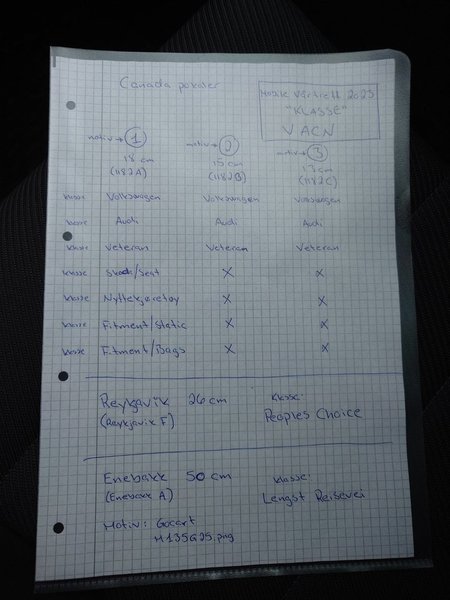 Canada pokaler
VAG Värtreff 2025
"KLASSE"
VACN
motiv → 1 motiv → 2 motiv → 3
18 cm 15 cm 13 cm
(1182A) (1182B) (1182C)
klasse Volkswagen Volkswagen Volkswagen
klasse Audi Audi Audi
klasse Veteran Veteran Veteran
klasse Skoda/Seat X X
klasse Nyttekjøretøy X X
klasse Fitment/Static X X
klasse Fitment/Bags X X
Reykjavik 26 cm klasse:
(Reykjavik F) Peoples Choice
Enebakk 50 cm klasse:
(Enebakk A) Lengst Reisevei
Motiv: Gocart
M135G25.png